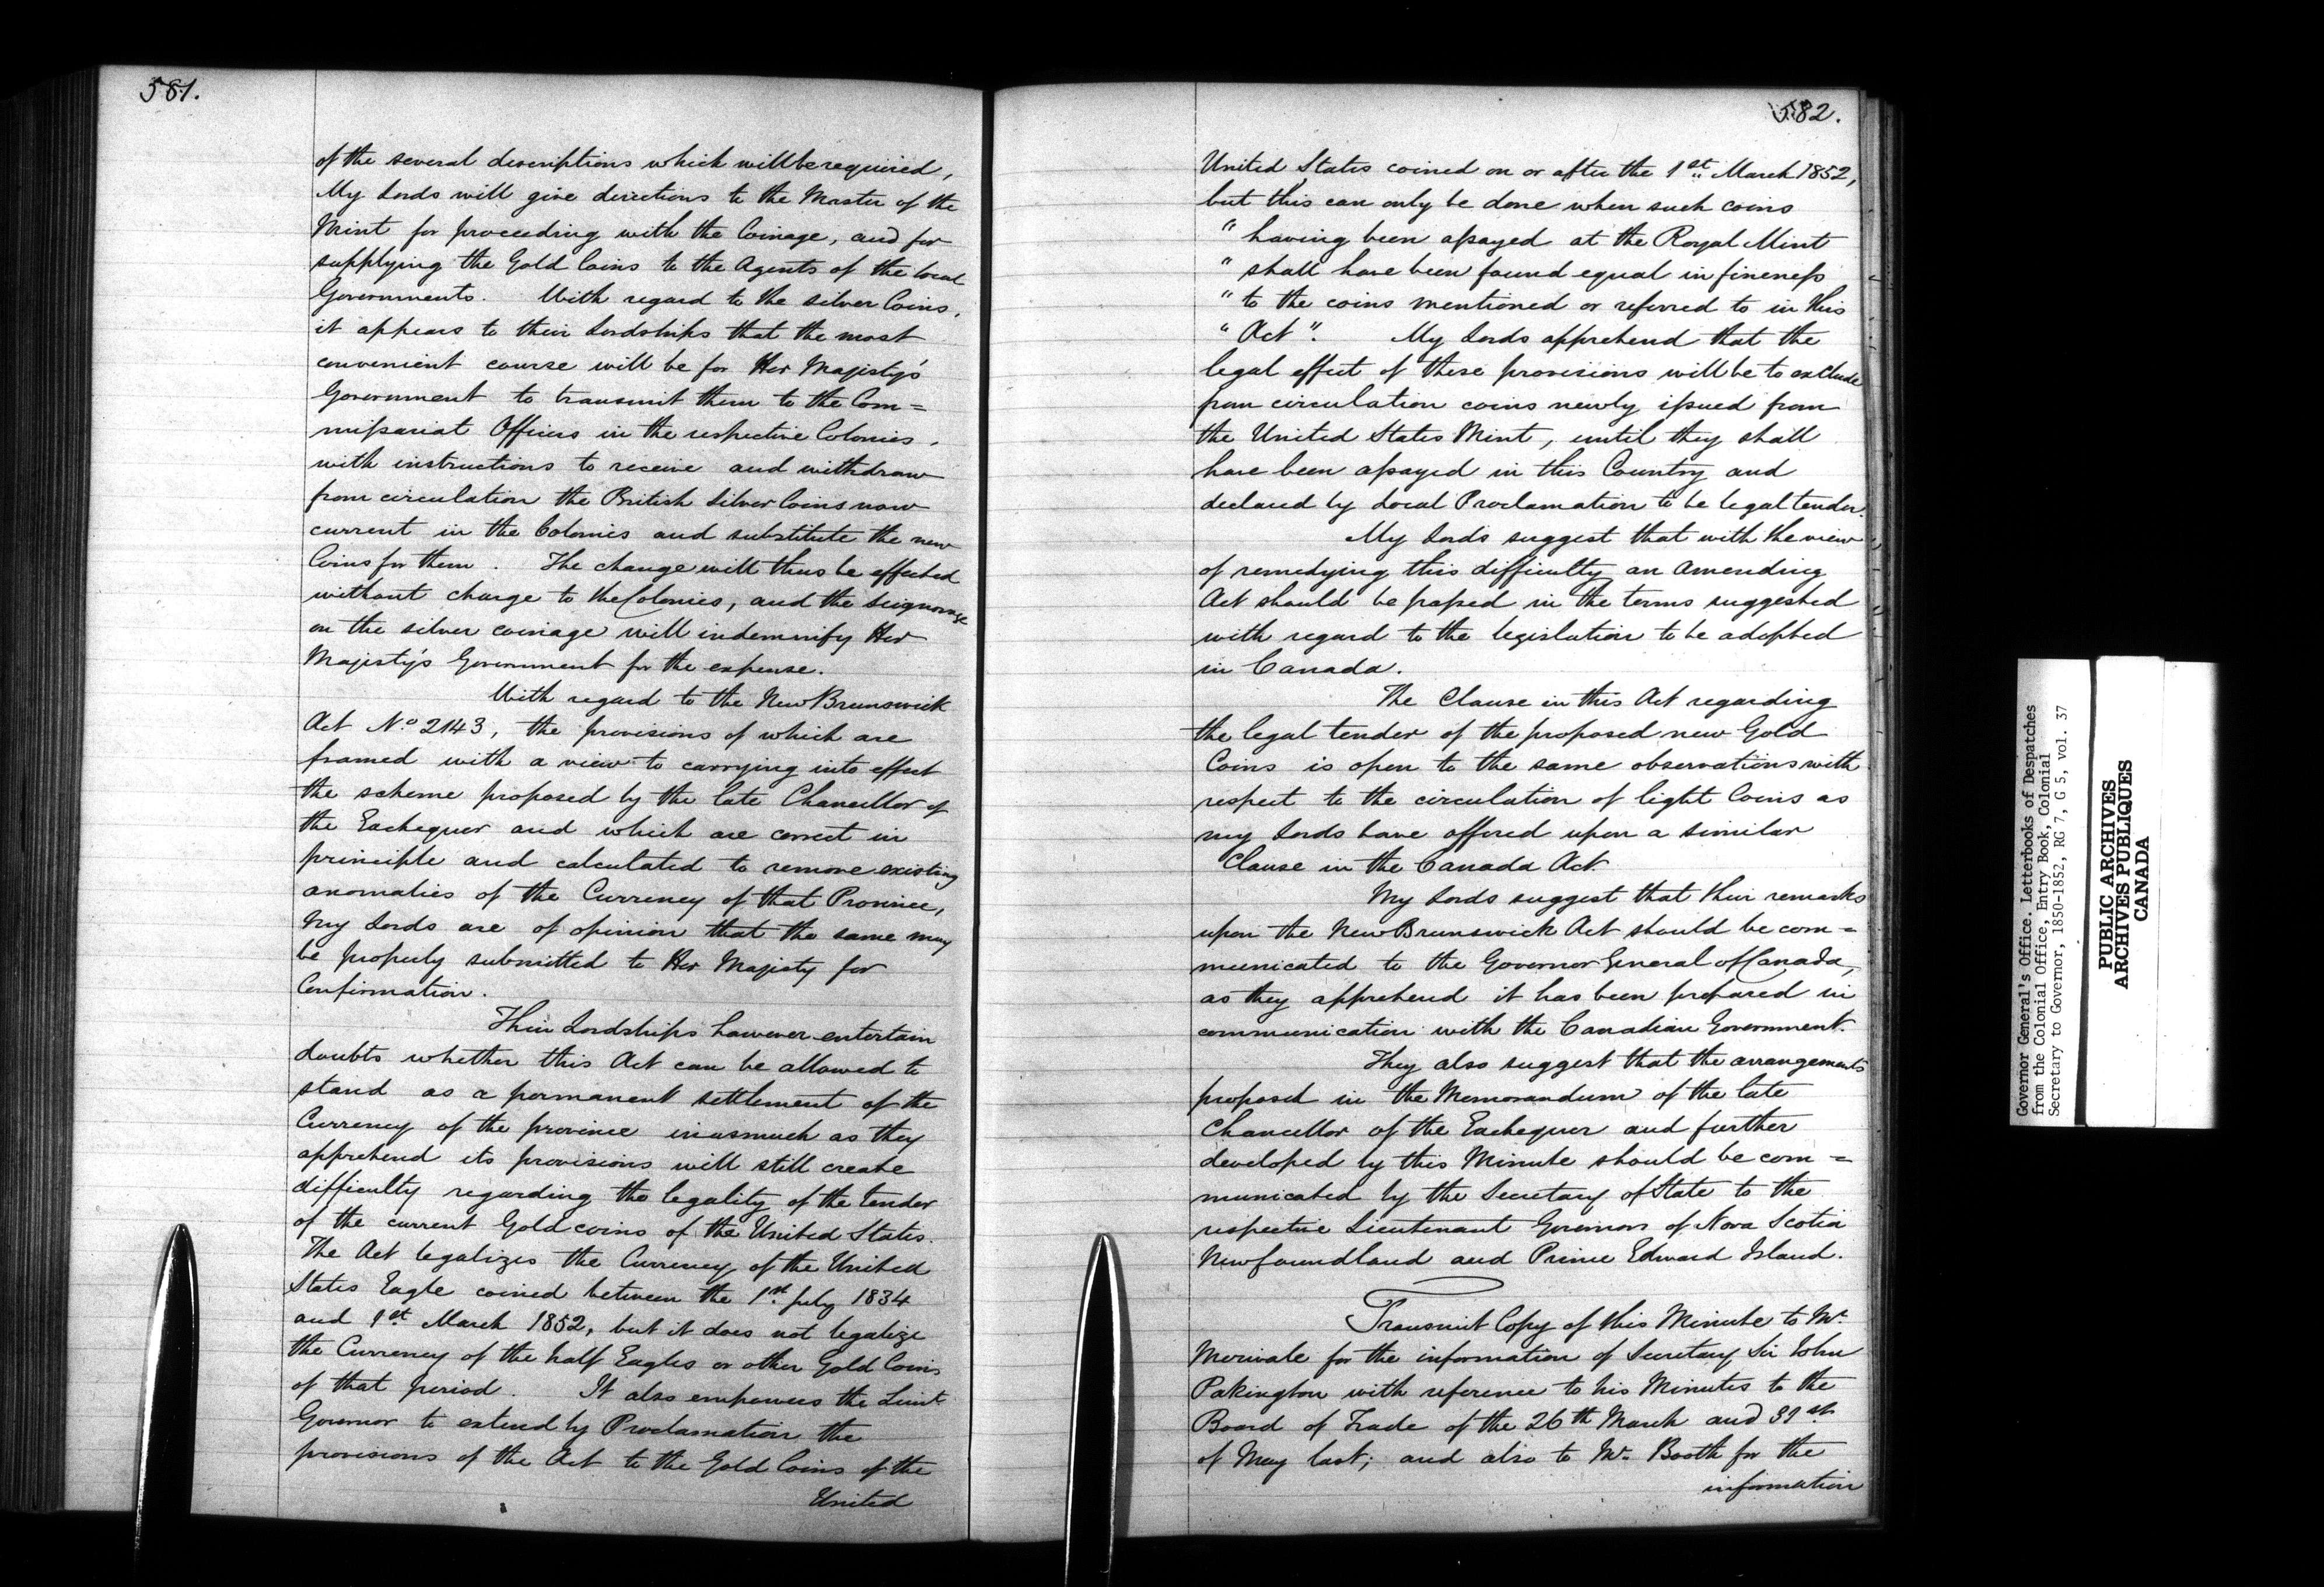 581.
of the several descriptions which will be required,
My Lords will give directions to the Master of the
Mint for proceeding with the Coinage, and for
supplying the Gold Coins to the Agents of the local
Governments. With regard to the silver Coins,
it appears to their Lordships that the most
convenient course will be for Her Majesty's
Government to transmit them to the Com=
missariat Officers in the respective Colonies,
with instructions to receive and withdraw
from circulation the British Silver Coins now
current in the Colonies and substitute the new
Coins for them. The change will thus be effected
without charge to the Colonies, and the Seignorage
on the silver coinage will indemnify Her
Majesty's Government for the expense.
With regard to the New Brunswick
Act No. 2143, the provisions of which are
framed with a view to carrying into effect
the scheme proposed by the late Chancellor of
the Exchequer and which are correct in
principle and calculated to remove existing
anomalies of the Currency of that Province,
My Lords are of opinion that the same may
be properly submitted to Her Majesty for
Confirmation.
Their Lordships however entertain
doubts whether this Act can be allowed to
stand as a permanent settlement of the
Currency of the province inasmuch as they
apprehend its provisions will still create
difficulty regarding the legality of the tender
of the current Gold coins of the United States.
The Act legalizes the Currency of the United
States Eagle coined between the 1st. July 1834
and 1st March 1852, but it does not legalize
the Currency of the half Eagles or other Gold Coins
of that period. It also empowers the Lieut
Governor to extend by Proclamation the
provisions of the Act to the Gold Coins of the
United
582.
United States coined on or after the 1st March 1852,
but this can only be done when such coins
" having been assayed at the Royal Mint
" shall have been found equal in fineness
" to the coins mentioned or referred to in this
" Act ". My Lords apprehend that the
legal effect of these provisions will be to exclude
from circulation coins newly issued from
the United States Mint, until they shall
have been assayed in this Country and
declared by Local Proclamation to be legal tender.
My Lords suggest that with the view
of remedying this difficulty an Amending
Act should be passed in the terms suggested
with regard to the legislation to be adopted
in Canada.
The Clause in this Act regarding
the legal tender of the proposed new Gold
Coins is open to the same observations with
respect to the circulation of light Coins as
my Lords have offered upon a similar
Clause in the Canada Act.
My Lords suggest that their remarks
upon the New Brunswick Act should be com=
municated to the Governor General of Canada,
as they apprehend it has been prepared in
communication with the Canadian Government.
They also suggest that the arrangements
proposed in the Memorandum of the late
Chancellor of the Exchequer and further
developed by this Minute should be com=
municated by the Secretary of State to the
respective Lieutenant Governors of Nova Scotia
Newfoundland and Prince Edward Island.
Transmit Copy of this Minute to Mr.
Merivale for the information of Secretary Sir John
Pakington with reference to his Minutes to the
Board of Trade of the 26th March and 31st
of May last; and also to Mr. Booth for the
information
Governor General's Office. Letterbooks of Despatches
from the Colonial Office, Entry Book, Colonial
Secretary to Governor, 1850-1852, RG 7, G 5, vol. 37
PUBLIC ARCHIVES
ARCHIVES PUBLIQUES
CANADA